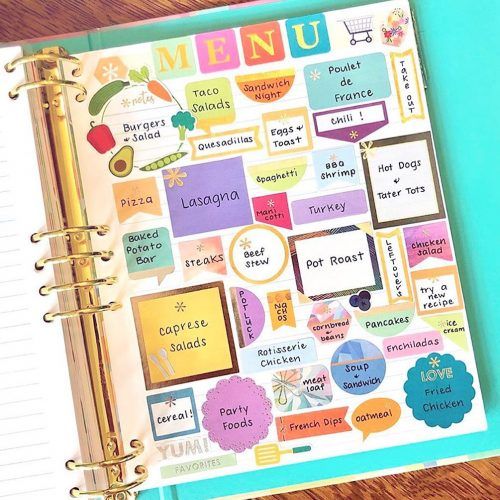 MENU
notes
Burgers
+ Salad
Taco
Salads
Sandwich
Night
Poulet
de
France
Take out
Quesadillas
Eggs
+
Toast
Chili !
Pizza
Lasagna
Spaghetti
BBQ
Shrimp
Hot Dogs
+
Tater Tots
Mani
cotti
Turkey
Baked
Potato
Bar
steaks
Beef
stew
Pot Roast
Leftovers
chicken
salad
try a
new
recipe
Caprese
Salads
Potluck
Na
chos
cornbread
+
beans
Pancakes
ice
cream
Rotisserie
Chicken
Enchiladas
cereal!
Party
Foods
meat
loaf
Soup
+
Sandwich
LOVE
Fried
Chicken
French Dips
oatmeal
YUM!
FAVORITES